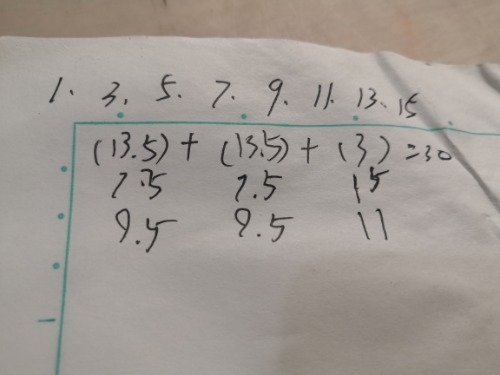 1. 3. 5. 7. 9. 11. 13. 15
(13.5) + (13.5) + (3) =30
7.5 7.5 15
9.5 9.5 11